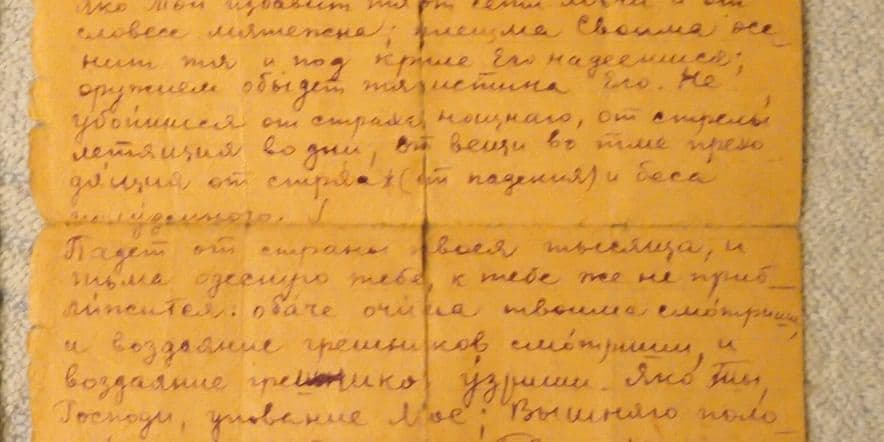 яко Той избавит тя от сети ловчи и от
словесе мятежна; плещма Своима осе
нит тя и под криле Его надеешися;
оружием обыдет тя истина Его. Не
убоишися от страха нощнаго, от стрелы
летящия во дни, от вещи во тме прехо
дящия от стряща (от падения) и беса
полуденного.
Падет от страны твоея тысяща, и
тьма одесную тебе, к тебе же не приб–
лижится. обаче очима твоима смотриши
и воздаяние грешников смотриши, и
воздаяние узриши. Яко Ты,
Господи, упование Мое; Вышняго поло